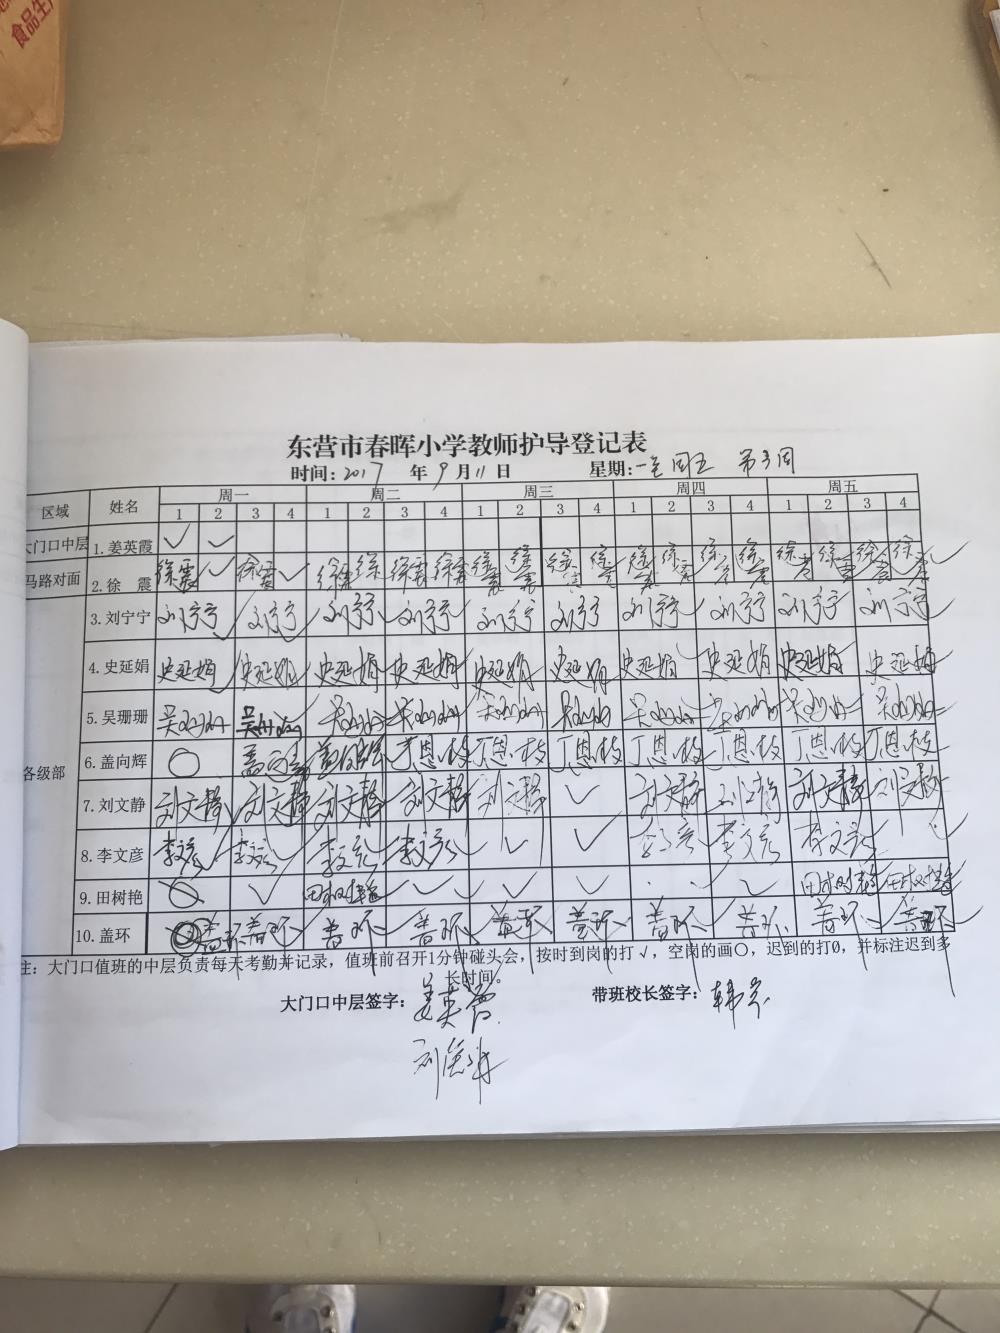 食品生产
东营市春晖小学教师护导登记表
时间：2017 年 9 月 11 日 星期：一至周五 第3周
区域 姓名 周一 周二 周三 周四 周五
1 2 3 4 1 2 3 4 1 2 3 4 1 2 3 4 1 2 3 4
大门口中层 1.姜英霞 ✓ ✓
马路对面 2.徐 震 徐震 ✓ 徐震 ✓ 徐震 徐 徐震 徐震 徐震 徐震 徐震 徐震 徐震 徐震 徐震
各级部
3.刘宁宁 刘宁宁 刘宁宁 刘宁宁 刘宁宁 刘宁宁 刘宁宁 刘宁宁 刘宁宁 刘宁宁 刘宁宁
4.史延娟 史延娟 史延娟 史延娟 史延娟 史延娟 史延娟 史延娟 史延娟 史延娟 史延娟
5.吴珊珊 吴珊珊 吴珊珊 吴珊珊 吴珊珊 吴珊珊 吴珊珊 吴珊珊 吴珊珊 吴珊珊 吴珊珊
6.盖向辉 ○ 盖向辉 盖向辉 丁恩枝 丁恩枝 丁恩枝 丁恩枝 丁恩枝 丁恩枝 丁恩枝
7.刘文静 刘文静 刘文静 刘文静 刘文静 刘文静 ✓ 刘文静 刘文静 刘文静 刘文静
8.李文彦 李文彦 李文彦 李文彦 李文彦 ✓ ✓ 李文彦 李文彦 李文彦 ✓
9.田树艳 ✓ 田树艳 ✓ ✓ ✓ ✓ 田树艳 田树艳
10.盖环 盖环 盖环 盖环 盖环 盖环 盖环 盖环 盖环 盖环 盖环
注：大门口值班的中层负责每天考勤并记录，值班前召开1分钟碰头会，按时到岗的打√，空岗的画〇，迟到的打Ø，并标注迟到多
长时间。
大门口中层签字：姜英霞 带班校长签字：